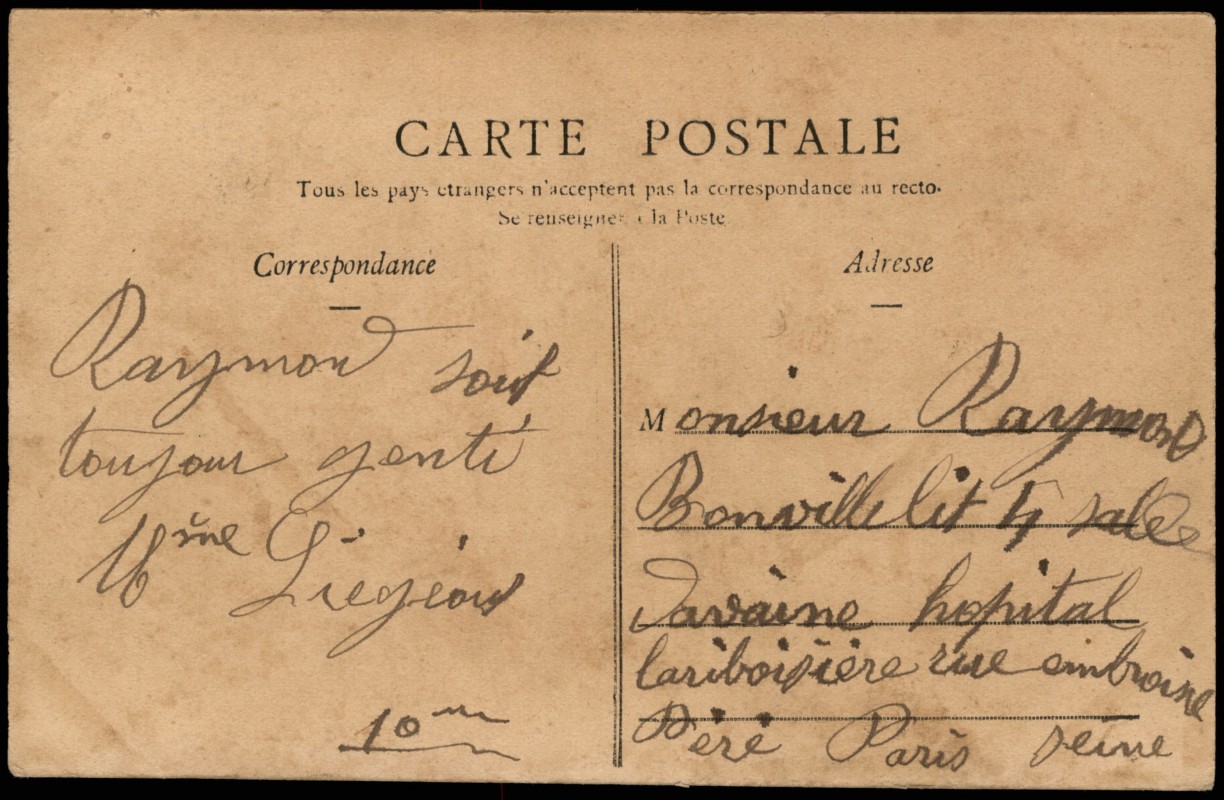 CARTE POSTALE
Tous les pays etrangers n'acceptent pas la correspondance au recto.
Se renseigner à la Poste
Correspondance
Raymond soit
toujour genti
Mme Liegeois
10
Adresse
Monsieur Raymond
Bonville lit 4 salle
Davaine hopital
lariboisière rue embroise
Péré Paris seine